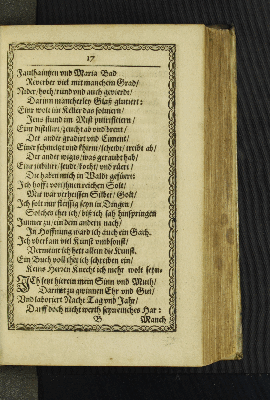 17
Faulhäuntzen vnd Maria Bad
Reverber viel mit manchem Grad/
Nider/hoch/rund vnd auch gevierdt/
Darinn mancherley Glaß glutiert:
Eins wolt im Keller das solvirn/
Jens stund im Mist putrificirn/
Eins distilliert/zeucht ab vnd brent/
Der ander gradirt vnd Ciment/
Einer schmeltzt vnd
Der ander wigts/was
Einer
Die haben mich in Waldt gefürt:
Ich hofft von ihnen reichen Solt/
Mas war verheissen Silber/Golt/
Ich solt nur fleissig seyn in Dingen/
Solches thet ich/biß ich sah hinspringen
Immer zu/ein dem andern nach/
In Hoffnung ward ich auch ein Gach.
Ich vberkam viel Kunst vmbsonst/
Vermeint ich hett allein die Kunst.
Ein Buch voll thet ich schreiben ein/
Keins Herren Knecht ich mehr wolt seyn.
ICh setzt hierein mein Sinn vnd Muth/
Darmit zu gwinnen Ehr vnd Gut/
Vnd laboriert Nacht Tag vnd Jahr/
Darff doch nicht werth
B Manch